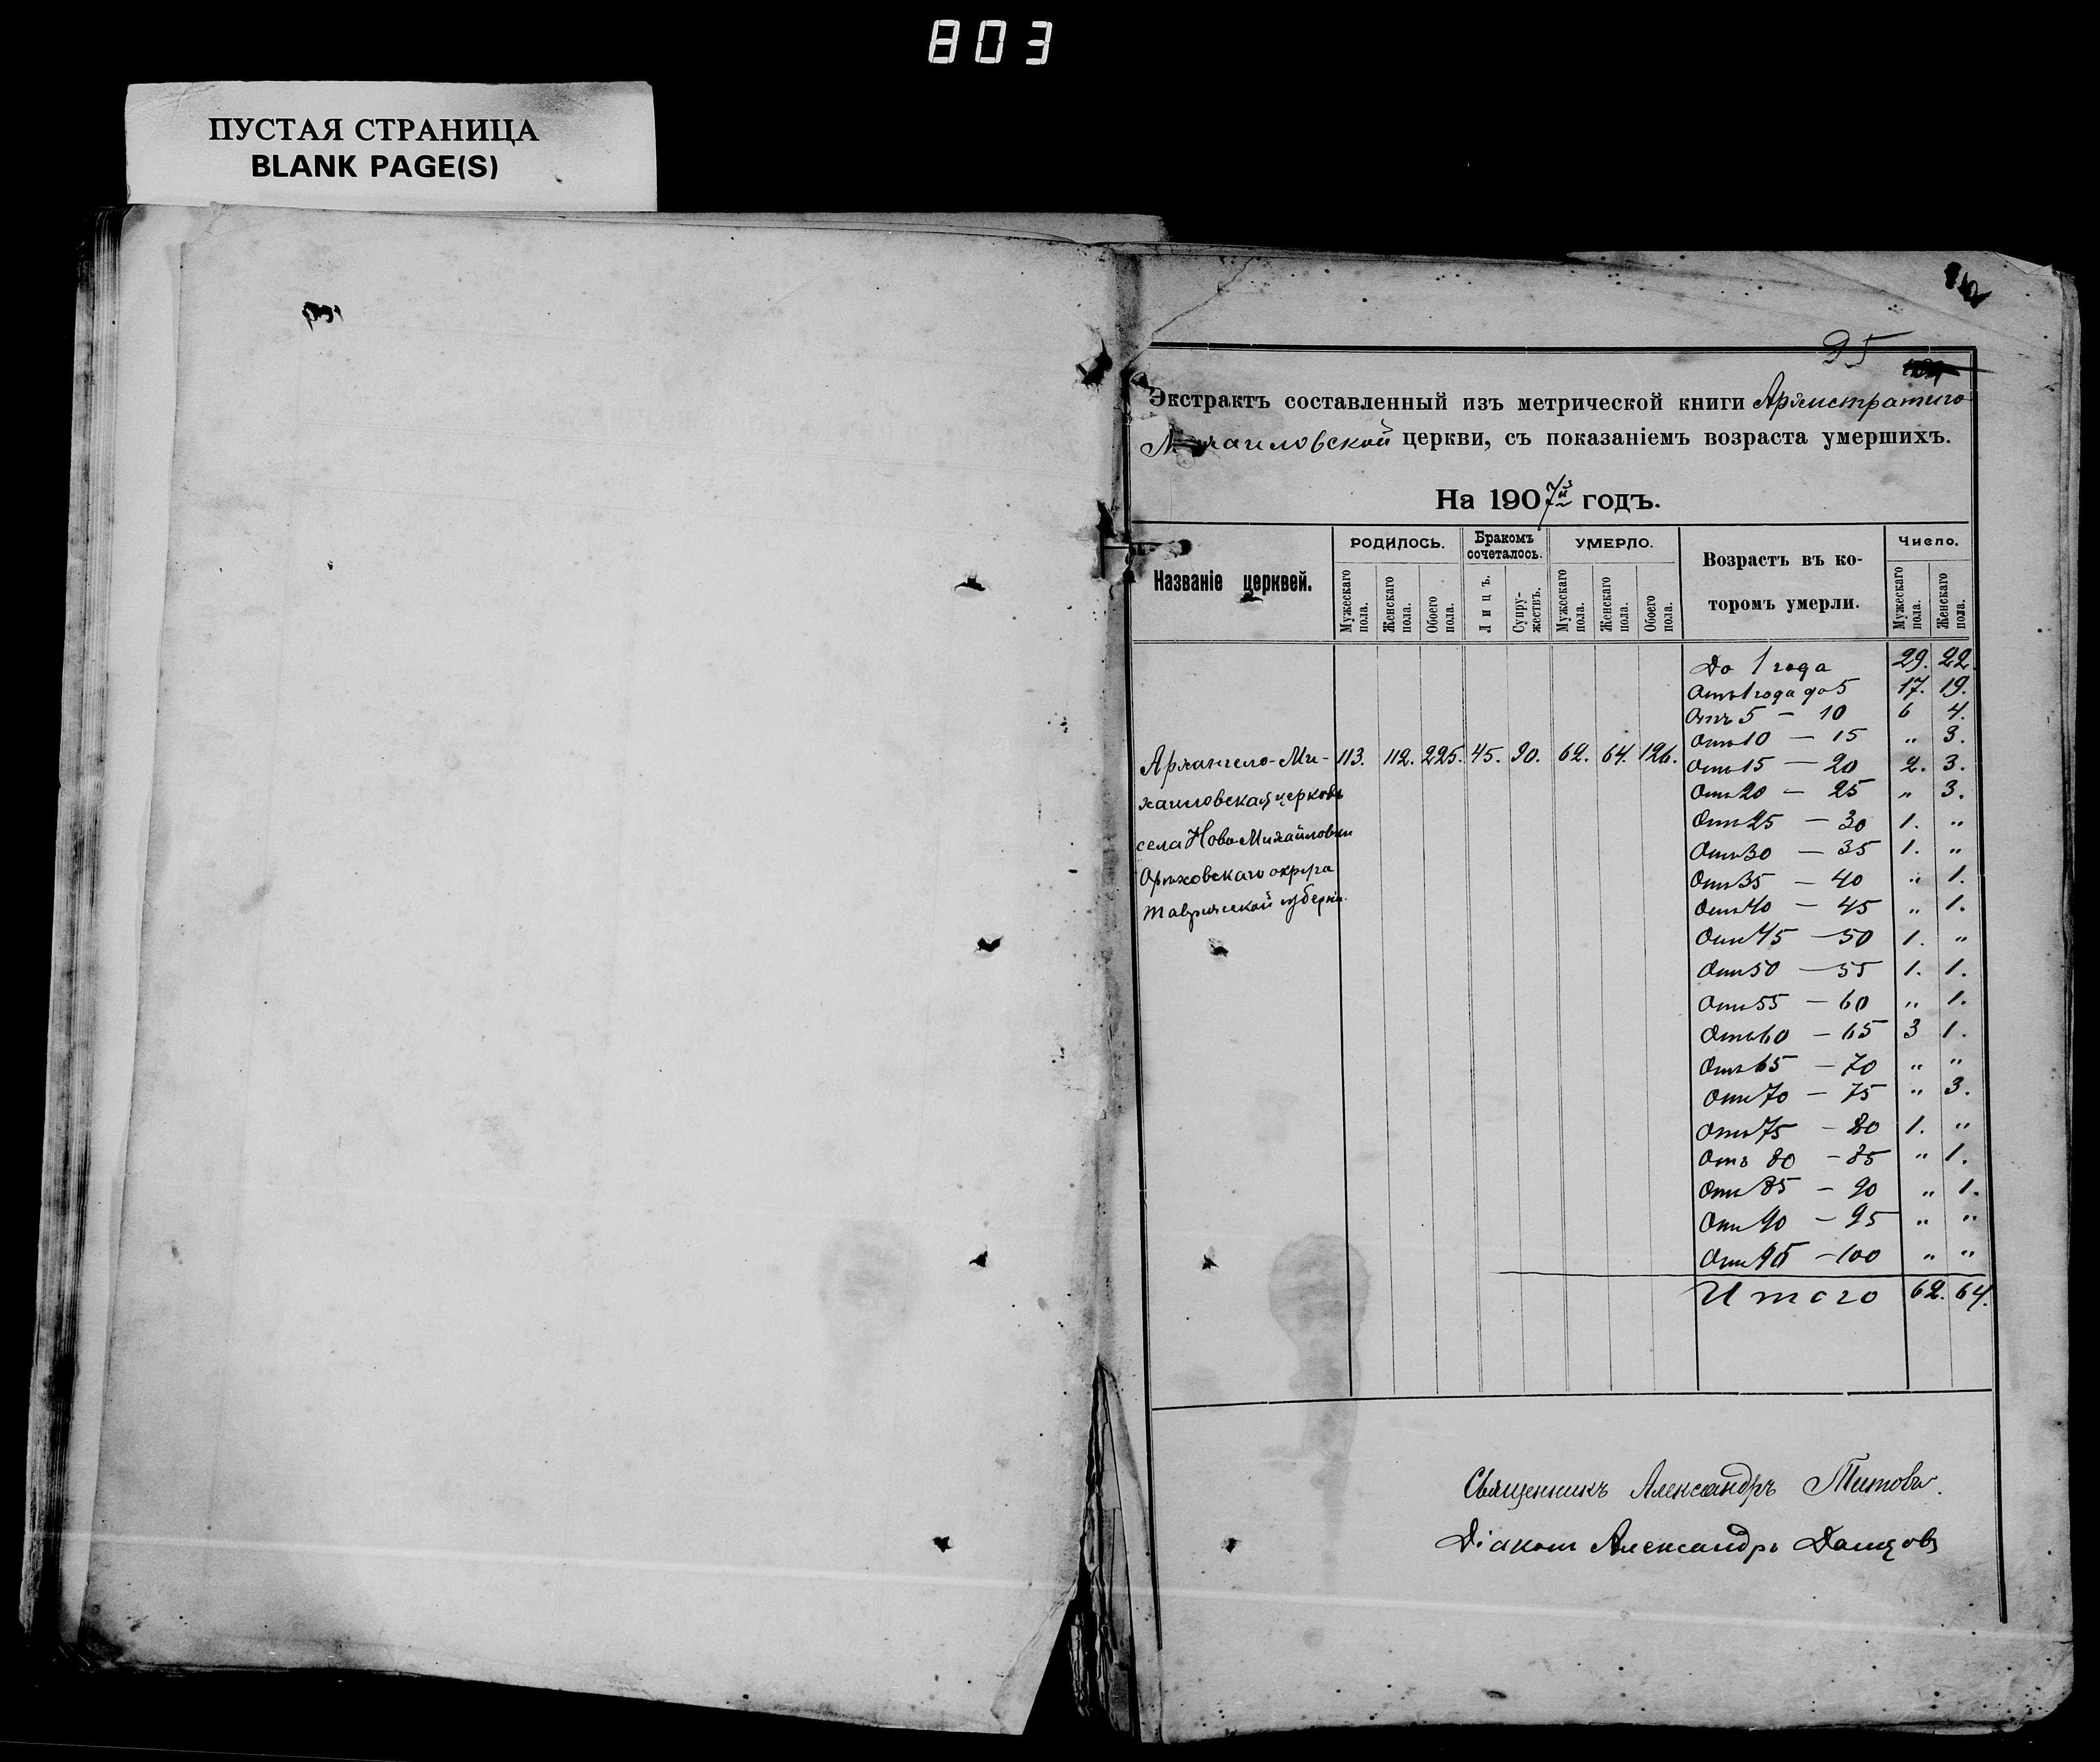 803
ПУСТАЯ СТРАНИЦА
BLANK PAGE(S)
95
Экстрактъ составленный изъ метрической книги Архистратиго
Михаиловской церкви, съ показаніемъ возраста умершихъ.
На 1907й годъ.
Названіе церквей. РОДИЛОСЬ. Бракомъ сочеталось. УМЕРЛО. Возрастъ въ ко- Число.
Мужескаго пола. Женскаго пола. Обоего пола. Лицъ. Супру-жествъ. Мужескаго пола. Женскаго пола. Обоего пола. торомъ умерли. Мужескаго пола. Женскаго пола.
До 1 года 29. 22.
Отъ 1 года до 5 17. 19.
Отъ 5 — 10 6 4.
Отъ 10 — 15 „ 3.
Архангело-Ми- 113. 112. 225. 45. 90. 62. 64. 126. Отъ 15 — 20 2. 3.
хаиловская церковь Отъ 20 — 25 „ 3.
села Ново-Михайловки Отъ 25 — 30 1. „
Отъ 30 — 35 1. „
Орѣховскаго округа Отъ 35 — 40 „ 1.
Таврической губерніи. Отъ 40 — 45 „ 1.
Отъ 45 — 50 1. „
Отъ 50 — 55 1. 1.
Отъ 55 — 60 „ 1.
Отъ 60 — 65 3 1.
Отъ 65 — 70 „ „
Отъ 70 — 75 „ 3.
Отъ 75 — 80 1. „
Отъ 80 — 85 „ 1.
Отъ 85 — 90 „ 1.
Отъ 90 — 95 „ „
Отъ 95 — 100 „ „
Итого 62. 64.
Священникъ Александръ Титовъ.
Діаконъ Александръ